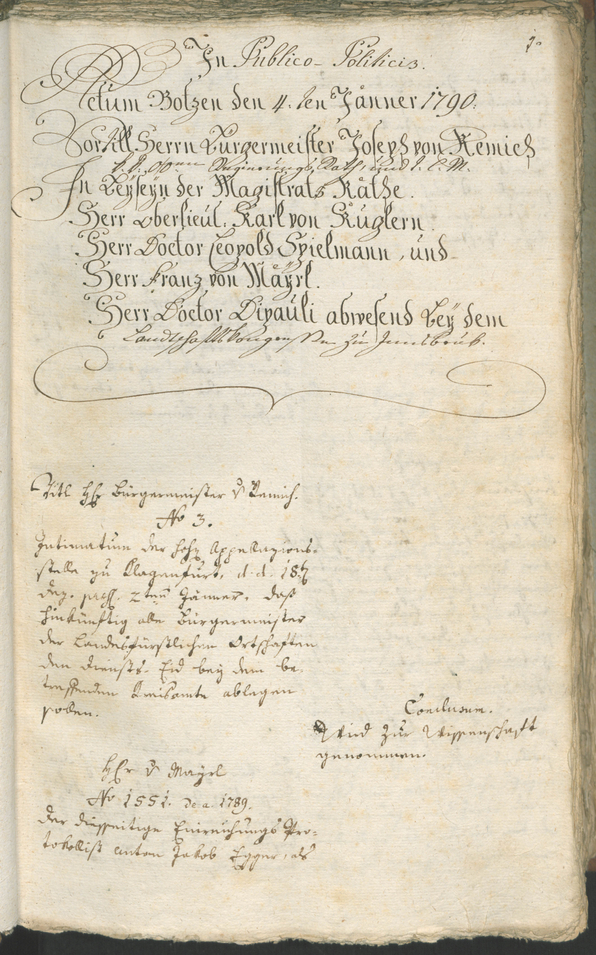 1.
In Publico-Politicis.
Actum Botzen den 4.ten Jänner 1790.
Vor Titl. Herrn Burgermeister Joseph von Remich
In Beyseyn der Magistrats Räthe.
Herr Oberlieut. Karl von Kuglern.
Herr Doctor Leopold Spielmann, und
Herr Franz von Mäyrl.
Herr Doctor Dipauli abwesend bey dem
Landschaftkongresse zu Innsbruk.
Titl Hr Bürgermeister v Remich.
No 3.
Intimatum der hohen Appellazions-
stelle zu Klagenfurt, d. d. 18
Dez. pras. 2ten Jänner, daß
hinkünftig alle Bürgermeister
der Landesfürstlichen Ortschaften
den Diensts-Eid bey dem be-
treffenden Kreisamte ablegen
sollen.
Conclusum.
Wird zur Wissenschaft
genommen.
Hr v Mayrl
No 1551. de a. 1789.
Der diesseitige Einreichungs Pro-
tokollist Anton Jakob Egger, als